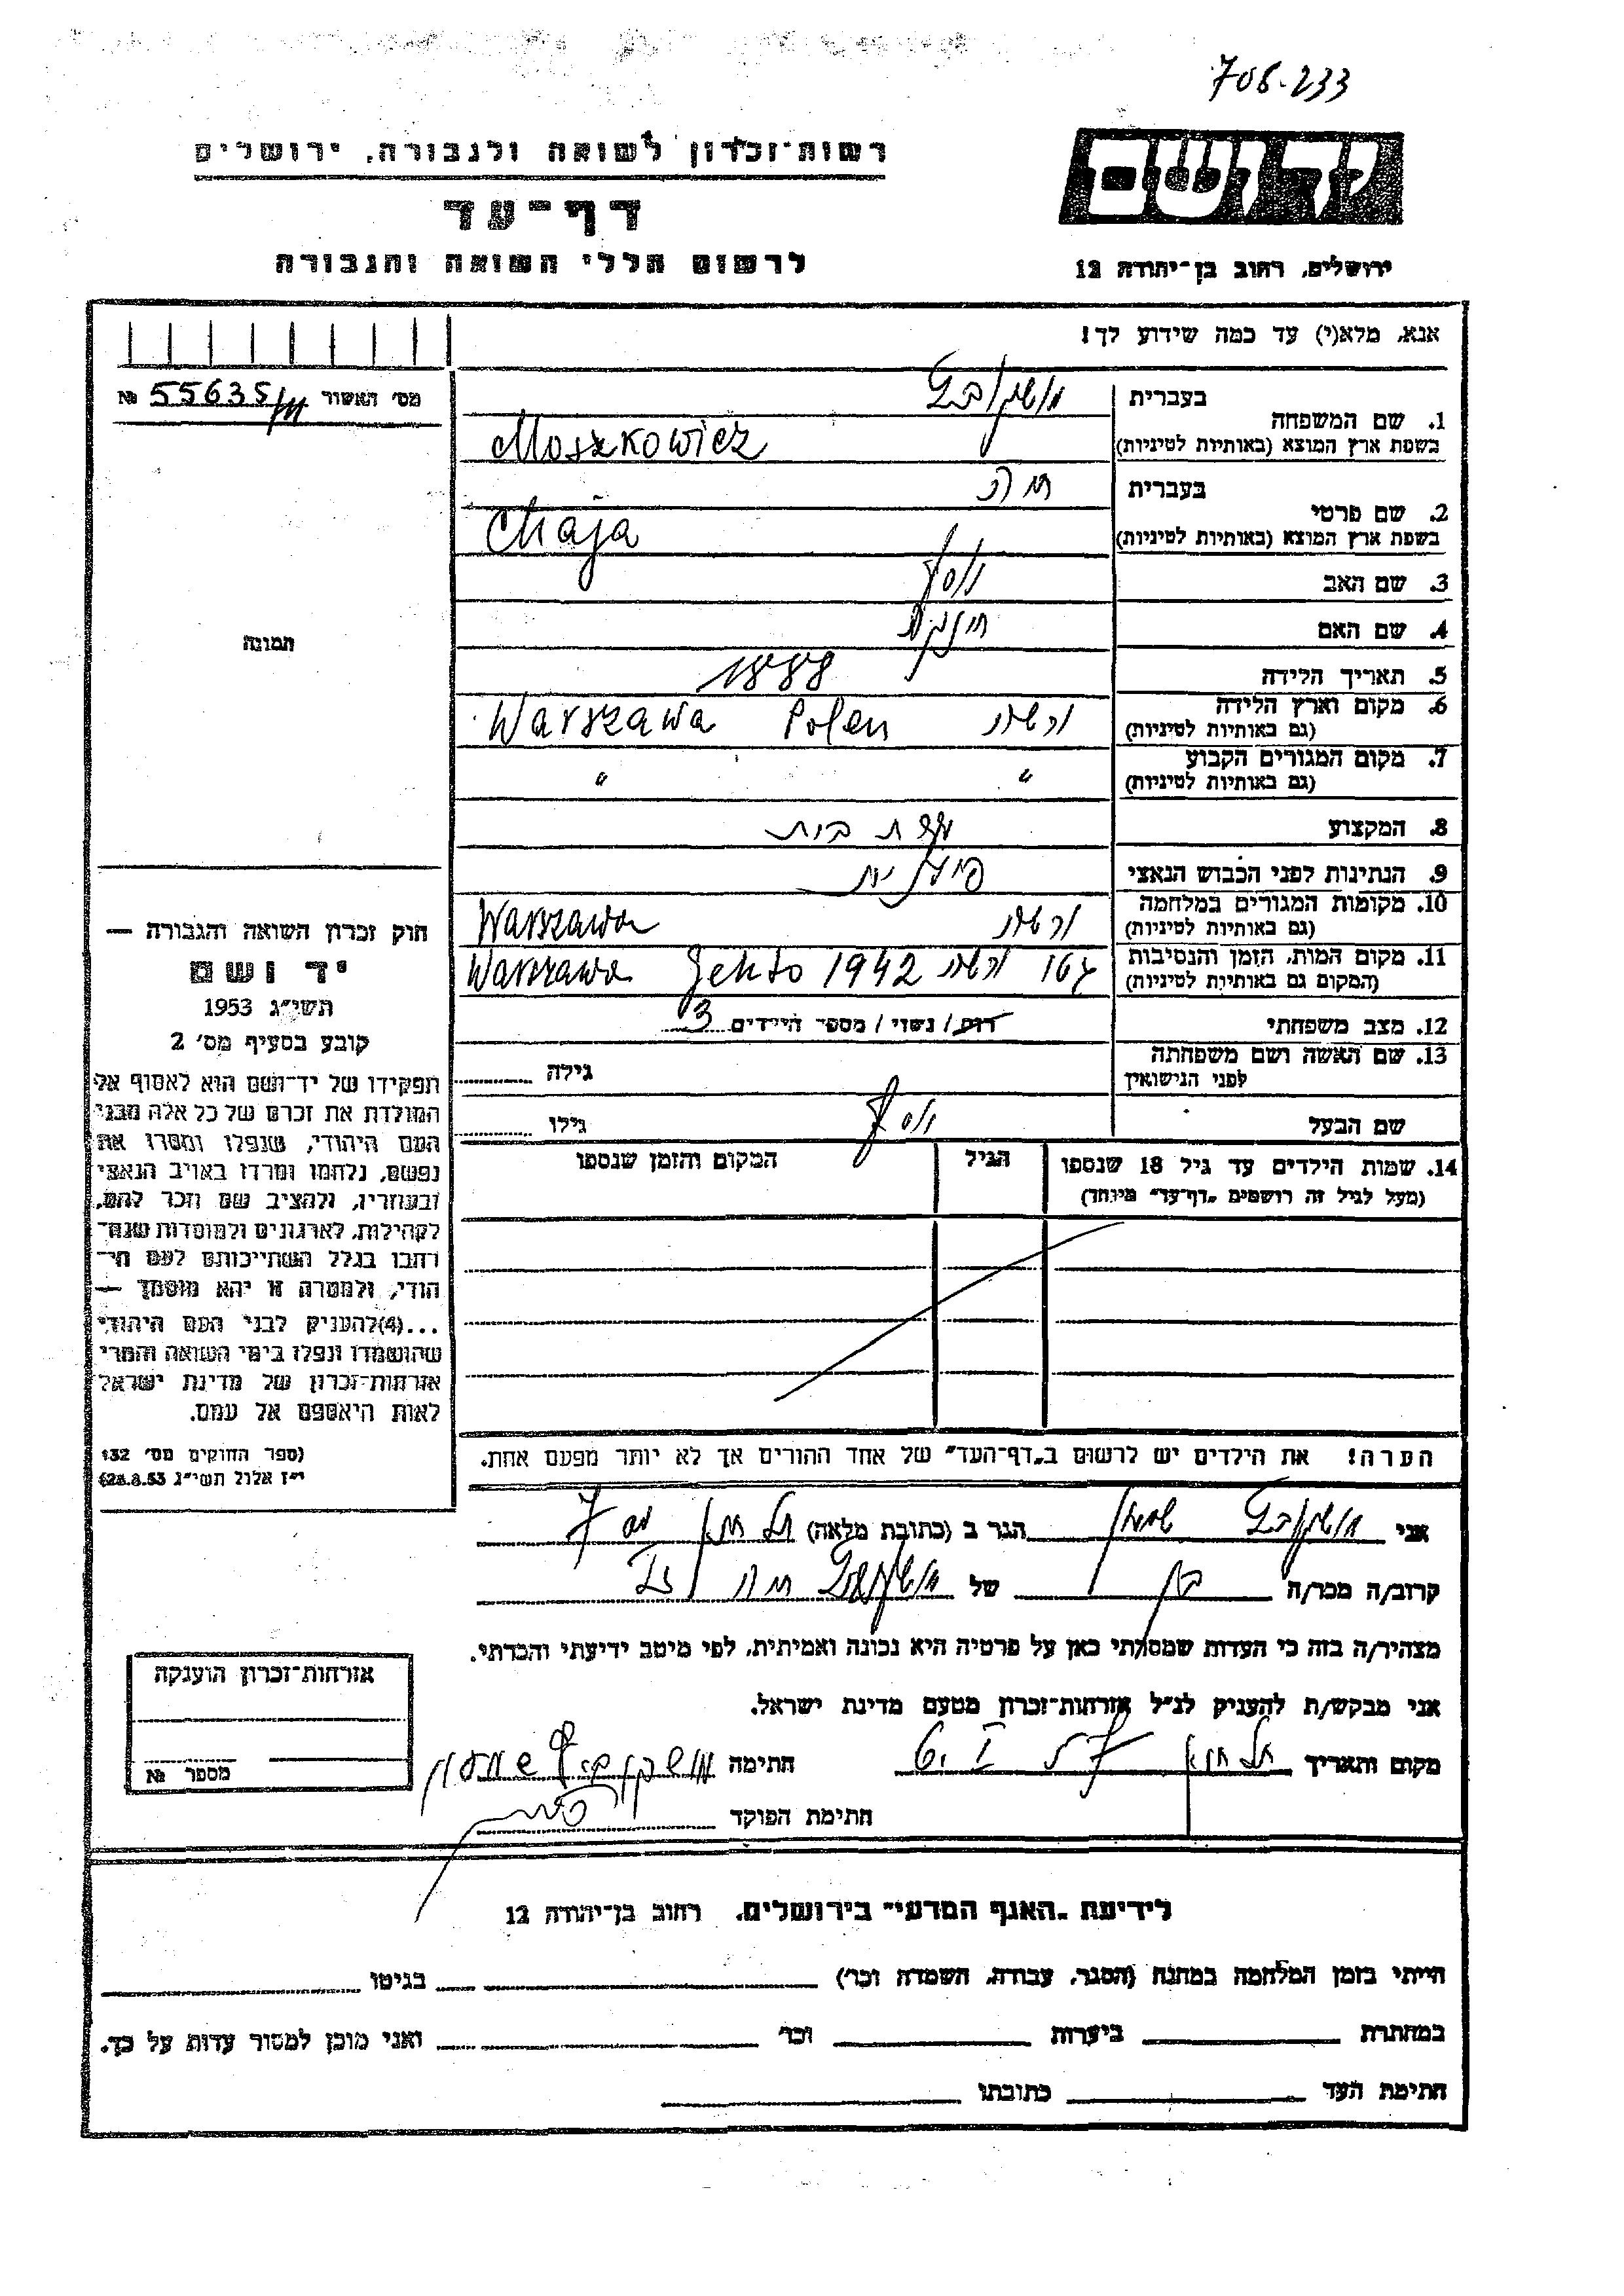 706-233
רשות־זכרון לשואה ולגבורה, ירושלים
דף־עד
לרשום חללי השואה והגבורה
יד ושם
ירושלים, רחוב בן־יהודה 12
אנא, מלא(י) עד כמה שידוע לך!
מס' האשור № 55635
בעברית מושקוביץ
1. שם המשפחה
בשפת ארץ המוצא (באותיות לטיניות) Moszkowicz
בעברית חיה
2. שם פרטי
בשפת ארץ המוצא (באותיות לטיניות) Chaja
3. שם האב יוסף
4. שם האם
תמונה
5. תאריך הלידה 1888
6. מקום וארץ הלידה
(גם באותיות לטיניות) ורשה Polen Warszawa
7. מקום המגורים הקבוע
(גם באותיות לטיניות) " "
8. המקצוע עקרת בית
9. הנתינות לפני הכבוש הנאצי פולנית
10. מקומות המגורים במלחמה
(גם באותיות לטיניות) ורשה Warszawa
11. מקום המות, הזמן והנסיבות
(המקום גם באותיות לטיניות) גטו ורשה 1942 Warszawa Gehto
12. מצב משפחתי רוק / נשוי / מספר הילדים 3
13. שם האשה ושם משפחתה
לפני הנישואין גילה
שם הבעל יוסף גילו
14. שמות הילדים עד גיל 18 שנספו
(מעל לגיל זה רושמים "דף־עד" מיוחד)
הגיל
המקום והזמן שנספו
הערה! את הילדים יש לרשום ב"דף־העד" של אחד ההורים אך לא יותר מפעם אחת.
חוק זכרון השואה והגבורה —
יד ושם
תשי"ג 1953
קובע בסעיף מס' 2
תפקידו של יד־ושם הוא לאסוף אל
המולדת את זכרם של כל אלה מבני
העם היהודי, שנפלו ומסרו את
נפשם, נלחמו ומרדו באויב הנאצי
ובעוזריו, ולהציב שם וזכר להם,
לקהילות, לארגונים ולמוסדות שנח־
רבו בגלל השתייכותם לעם הי־
הודי, ולמטרה זו יהא מוסמך —
...(4)להעניק לבני העם היהודי
שהושמדו ונפלו בימי השואה והמרי
אזרחות־זכרון של מדינת ישראל
לאות היאספם אל עמם.
(ספר החוקים מס' 132
י"ז אלול תשי"ג 28.8.53)
אני מושקוביץ שמעון הגר ב (כתובת מלאה)
קרוב/ה מכר/ה בן של מושקוביץ חיה
מצהיר/ה בזה כי העדות שמסרתי כאן על פרטיה היא נכונה ואמיתית, לפי מיטב ידיעתי והכרתי.
אני מבקש/ת להעניק לנ"ל אזרחות־זכרון מטעם מדינת ישראל.
מקום ותאריך חתימה מושקוביץ שמעון
חתימת הפוקד
אזרחות־זכרון הוענקה
מספר №
לידיעת "האגף המדעי" בירושלים, רחוב בן־יהודה 12
הייתי בזמן המלחמה במחנה (הסגר, עבודה, השמדה וכו') בגיטו
במחתרת ביערות וכו' ואני מוכן למסור עדות על כך.
חתימת העד כתובתו